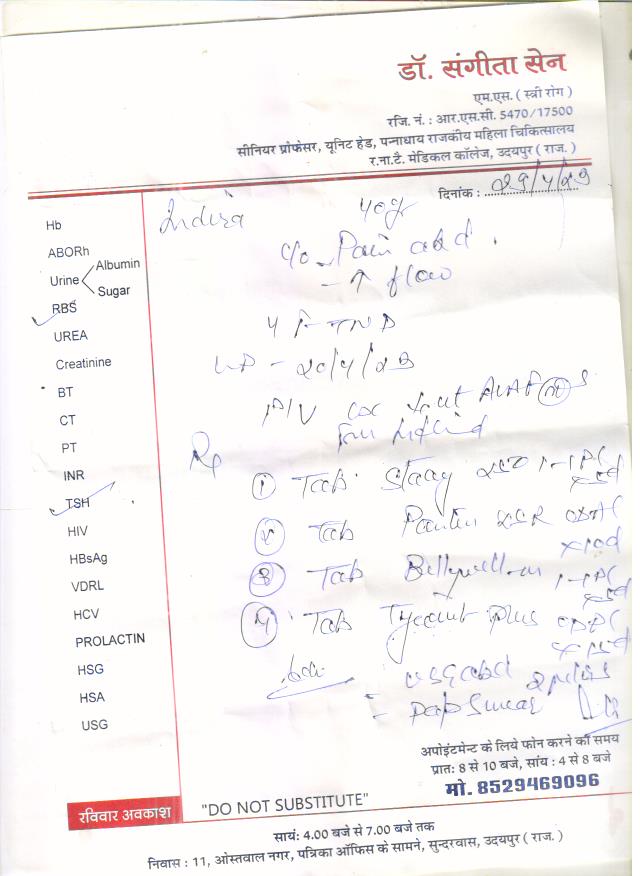 डॉ. संगीता सेन
एम.एस. ( स्त्री रोग )
रजि. नं. : आर.एस.सी. 5470/17500
सीनियर प्रोफेसर, यूनिट हेड, पन्नाधाय राजकीय महिला चिकित्सालय
र.ना.टै. मेडिकल कॉलेज, उदयपुर ( राज. )
दिनांक : 29/4/23
Hb
ABORh
Urine Albumin
Sugar
RBS
UREA
Creatinine
BT
CT
PT
INR
TSH
HIV
HBsAg
VDRL
HCV
PROLACTIN
HSG
HSA
USG
Indira 40yr
c/o - Pain abd.
- ↑ flow
20/4/23
P/V
Rx
① Tab. 1-1
② Tab
③ Tab
④ Tab plus
adv.
USG abd & pelvis
= Pap Smear
अपोइंटमेन्ट के लिये फोन करने का समय
प्रातः 8 से 10 बजे, सांय : 4 से 8 बजे
मो. 8529469096
रविवार अवकाश
"DO NOT SUBSTITUTE"
सायं: 4.00 बजे से 7.00 बजे तक
निवास : 11, ओस्तवाल नगर, पत्रिका ऑफिस के सामने, सुन्दरवास, उदयपुर ( राज. )